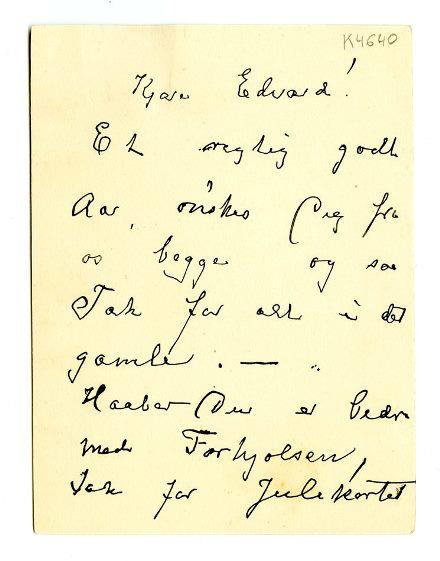 K4640
Kjære Edvard!
Et regtig godt
Aar, ønskes Dig fra
os begge og saa
Tak for alt i det
gamle. —
Haaber Du er bedre
med Forkjølsen,
Tak for Julekortet